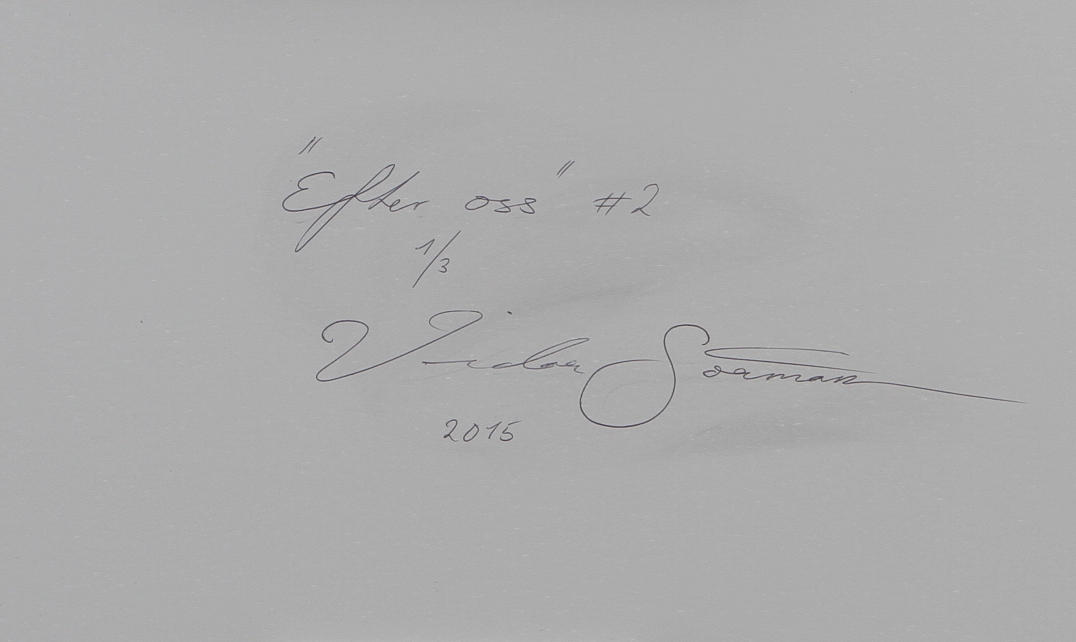 "Efter oss" #2
1/3
Vidar Sörman
2015